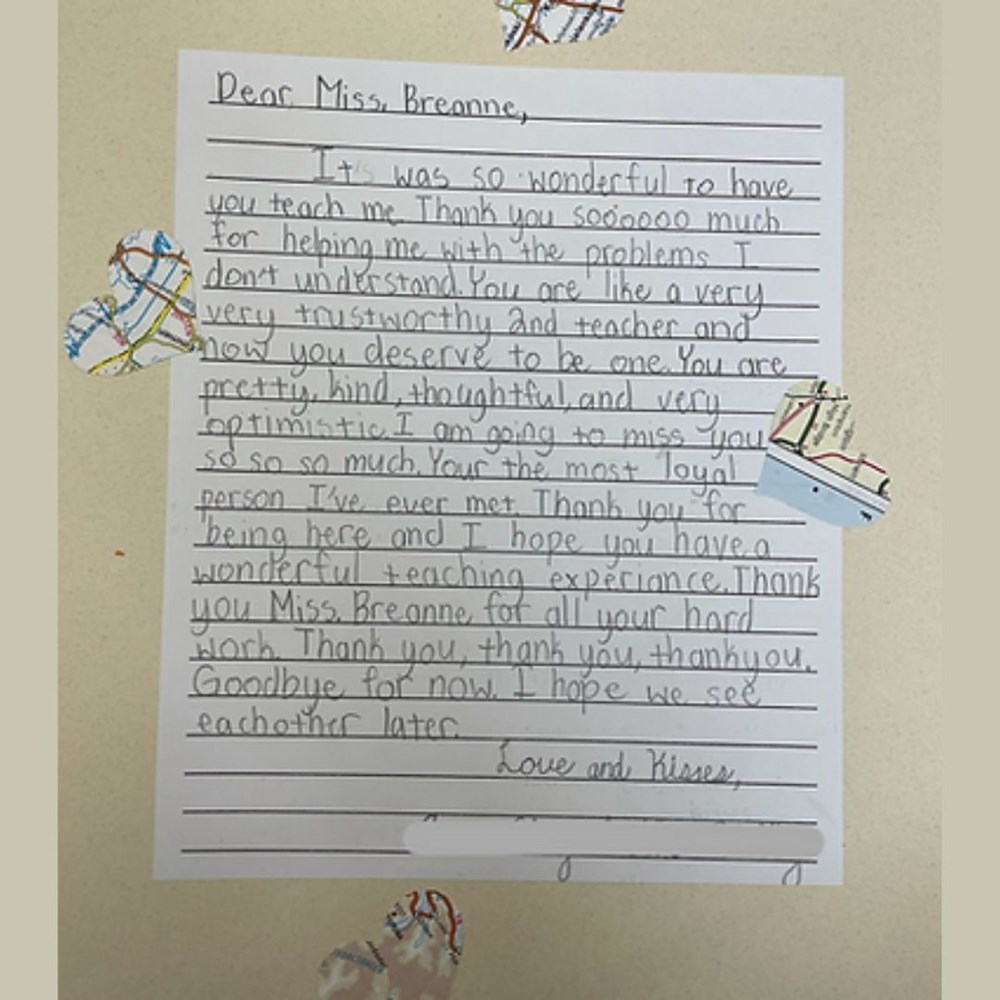 Dear Miss. Breanne,
It was so wonderful to have
you teach me. Thank you soooooo much
for helping me with the problems I
don't understand. You are like a very
very trustworthy 2nd teacher and
now you deserve to be one. You are
pretty, kind, thoughtful, and very
optimistic. I am going to miss you
so so so much. Your the most loyal
person I've ever met. Thank you for
being here and I hope you have a
wonderful teaching experiance. Thank
you Miss. Breanne for all your hard
work. Thank you, thank you, thankyou.
Goodbye for now. I hope we see
eachother later.
Love and Kisses,